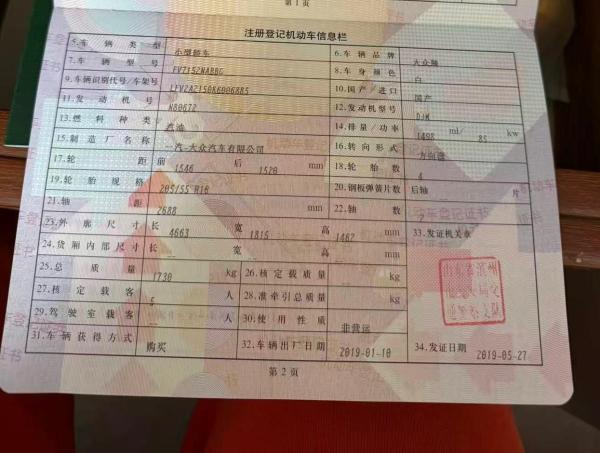 第1页
注册登记机动车信息栏
5.车辆类型 小型轿车 6.车辆品牌 大众牌
7.车辆型号 FV7152NABBG 8.车身颜色 白
9.车辆识别代号/车架号 10.国产/进口 国产
11.发动机号 N80672 12.发动机型号 DJM
13.燃料种类 汽油 14.排量/功率 1498 ml/ 85 kw
15.制造厂名称 一汽-大众汽车有限公司 16.转向形式 方向盘
17.轮距 前 1546 后 1520 mm 18.轮胎数 4
19.轮胎规格 205/55 R16 20.钢板弹簧片数 后轴 片
21.轴距 2688 mm 22.轴数 2
23.外廓尺寸 长 4663 宽 1815 高 1462 mm 33.发证机关章
24.货厢内部尺寸 长 宽 高 mm
25.总质量 1730 kg 26.核定载质量 kg
27.核定载客 5 人 28.准牵引总质量 kg
29.驾驶室载客 人 30.使用性质 非营运
31.车辆获得方式 购买 32.车辆出厂日期 2019-01-10 34.发证日期 2019-05-27
第2页